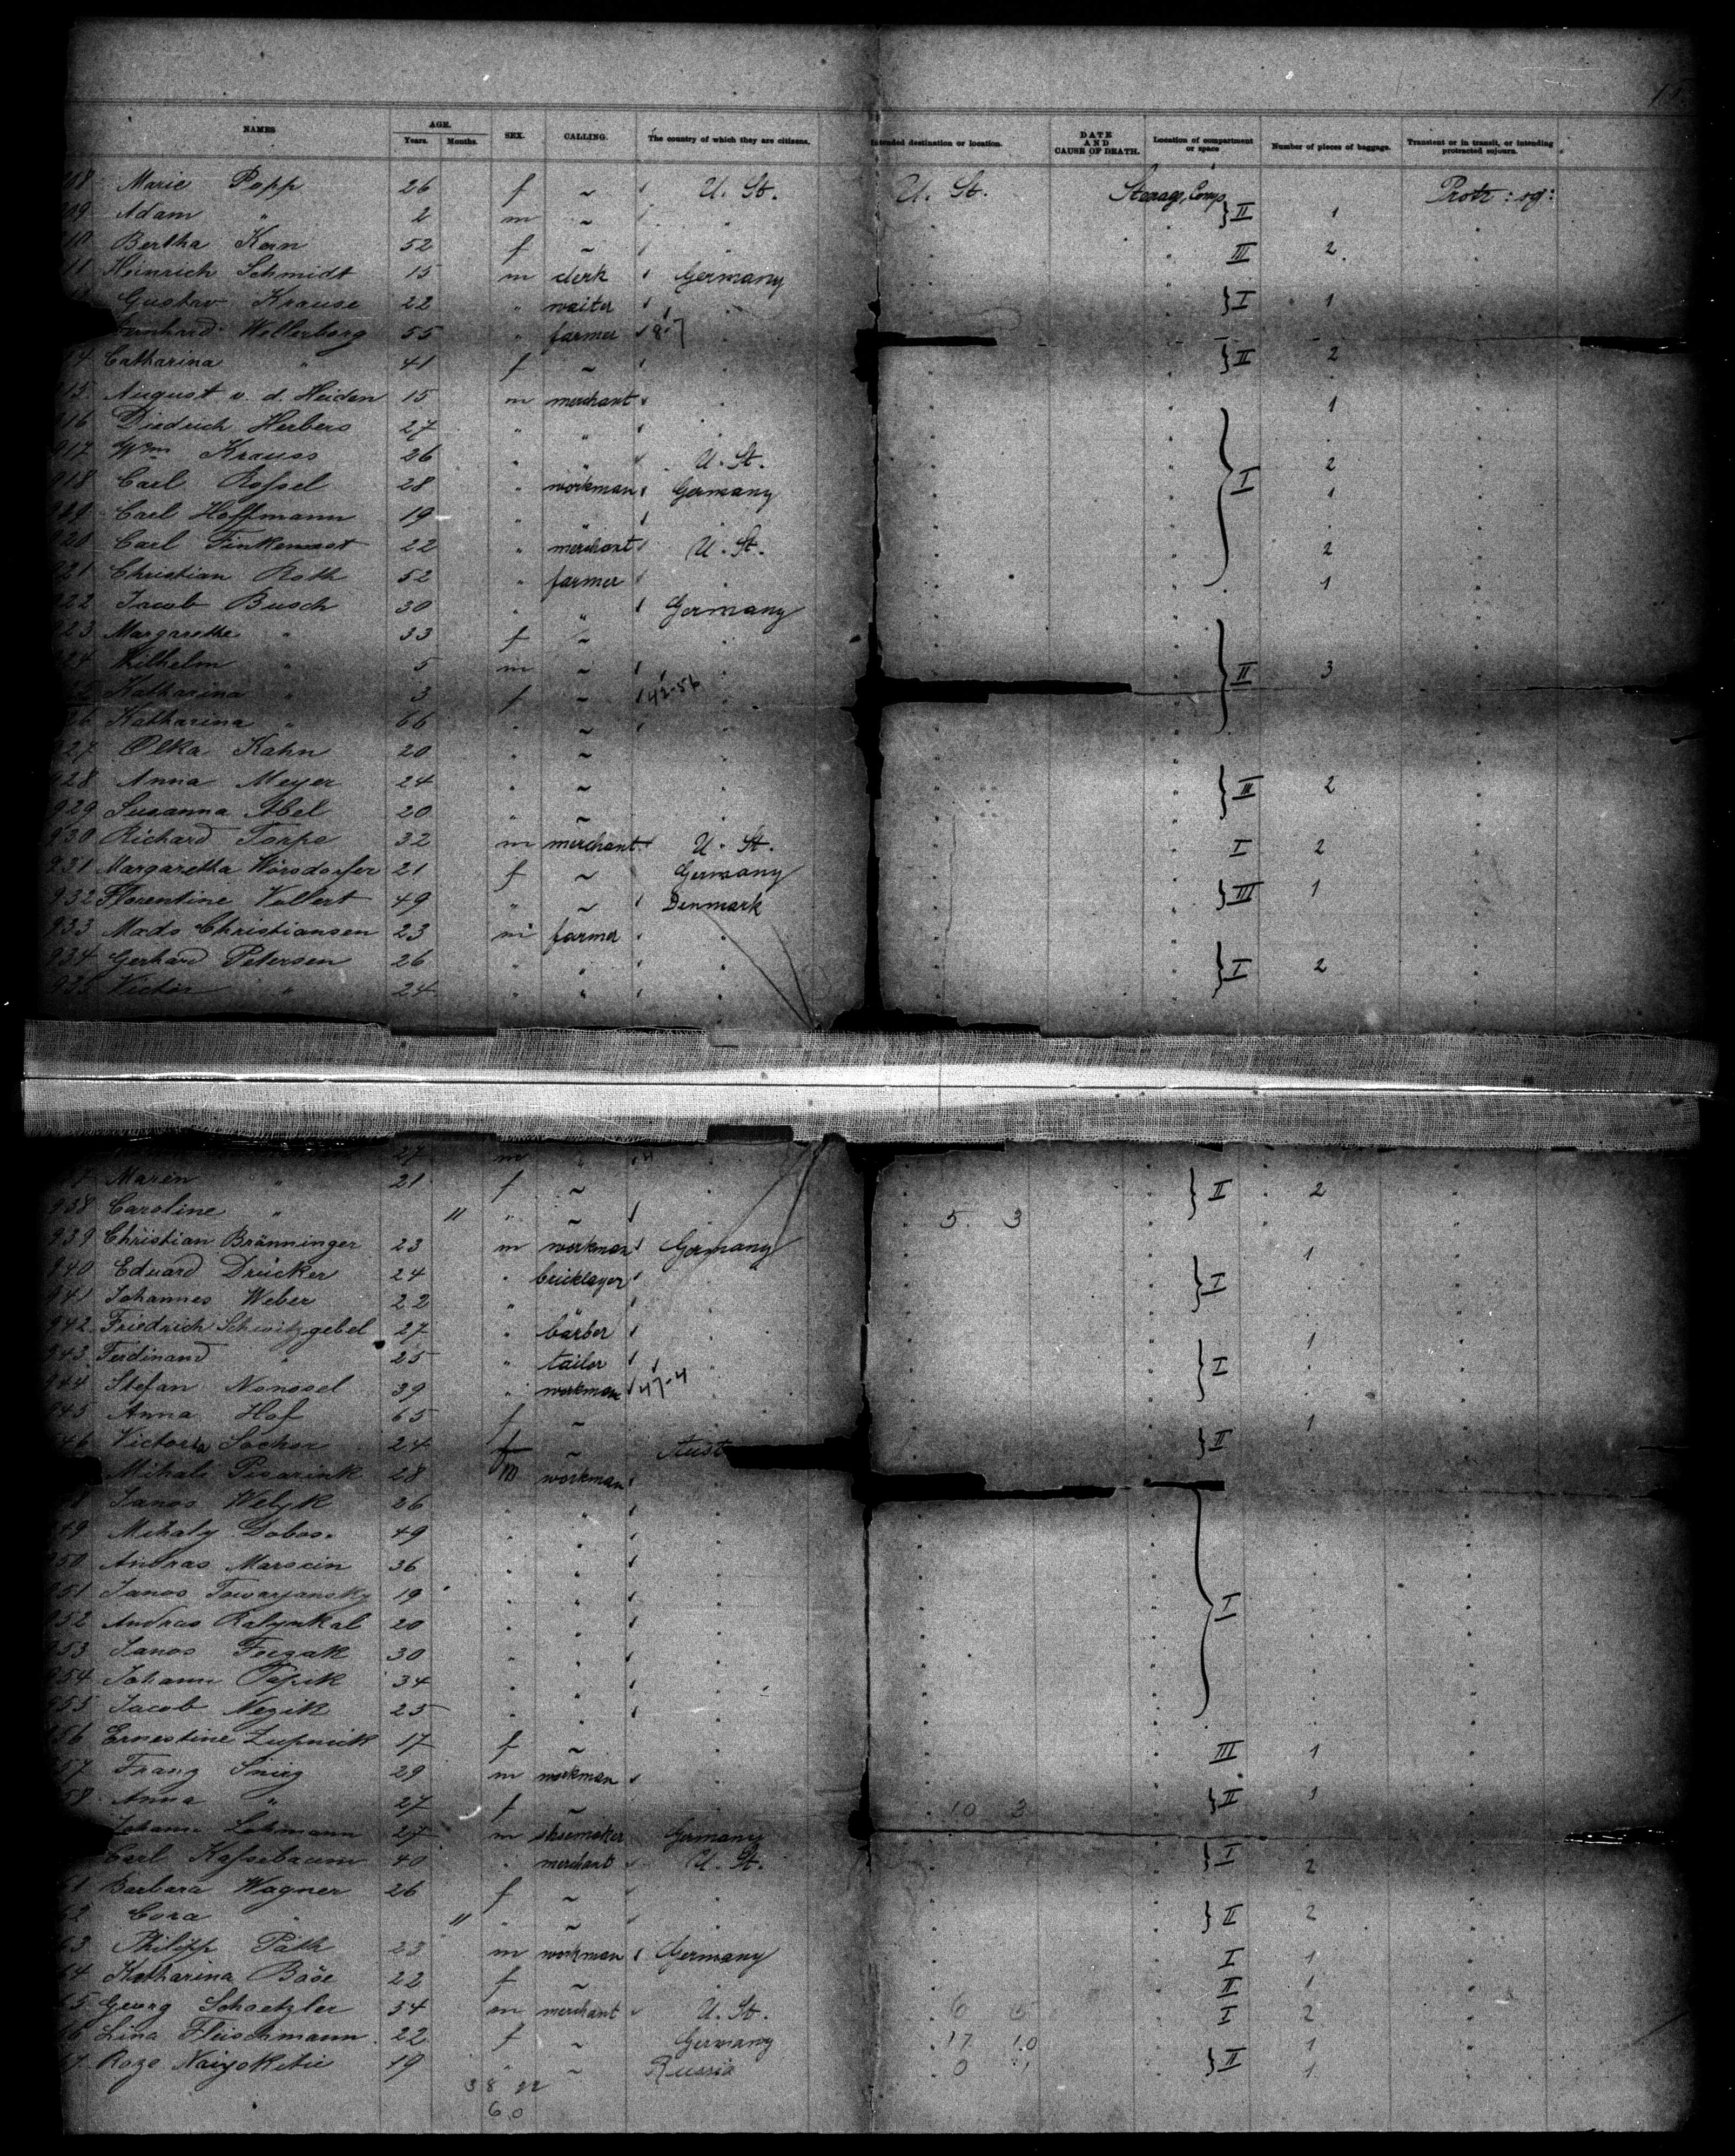 NAMES AGE. Years. Months. SEX. CALLING. The country of which they are citizens. Intended destination or location. DATE AND CAUSE OF DEATH. Location of compartment or space Number of pieces of baggage. Transient or in transit, or intending protracted sojourn.
Marie Popp 26 f ~ U. St. U. St. Steerage, Comp. Protr : og:
Adam " 2 m ~ } II 1
Bertha Kern 52 f ~ III 2
Heinrich Schmidt 15 m clerk Germany
Gustav Krause 22 " waiter } I 1
Wellerborg 55 " farmer 8-7
Catharina " 41 f ~ } II 2
August v. d. Heiden 15 m merchant 1
916 Diedrich Herbers 27 " "
917 Wm Krauss 26 " " U. St. 2
918 Carl Rossel 28 " workman Germany } I 1
Carl Hoffmann 19 " "
920 Carl 22 " merchant U. St. 2
921 Christian Roth 52 " farmer 1
922 Jacob Busch 30 " " Germany
923 Margarethe " 33 f ~
924 Wilhelm " 5 m ~ } II 3
Katharina " 3 f ~ 42-56
926 Katharina " 66 " ~
927 Olka Kahn 20 " ~
928 Anna Meyer 24 " ~ } III 2
929 Susanna Abel 20 " ~
930 Richard Torpe 32 m merchant U. St. I 2
931 Margaretha Wörsdorfer 21 f ~ Germany
932 Florentine Vollert 49 " ~ Denmark } III 1
933 Mads Christiansen 23 m farmer
934 Gerhard Petersen 26 " " } I 2
935 Victor " 24 " "
27 m
Maren " 21 f ~ } II 2
938 Caroline " 11 " ~ 5 3
939 Christian Bränninger 23 m workman Germany 1
940 Eduard Drücker 24 " bricklayer } I
941 Johannes Weber 22 " "
942 Friedrich Schmitzgebel 27 " barber 1
943 Ferdinand " 25 " tailor } I
944 Stefan Nonosel 39 " workman 47-4
945 Anna Hof 65 f ~ 1
946 Victoria Sochor 24 f ~ Aust } II
Mihali Pisarink 28 m workman
Janos Welyk 26 " "
949 Mihaly Dobos 49 " "
950 Andras Marscin 36 " "
951 Janos Towarjansky 19 " " } I
952 Andras 20 " "
953 Janos 30 " "
954 Johann 34 " "
955 Jacob Nezik 25 " "
956 Ernestine Zupnick 17 f ~ III 1
957 Franz Snirg 29 m workman
958 Anna " 27 f ~ } II 1 10 3
Johann Lehmann 27 m shoemaker Germany
Carl Kassebaum 40 " merchant U. St. } I 2
Barbara Wagner 26 f ~
Cora " 11 " ~ } II 2
Philipp Päth 23 m workman Germany I 1
Katharina Bäse 22 f ~ II 1
Georg Schaetzler 54 m merchant U. St. 6 I 2
Lina Fleischmann 22 f ~ Germany 17 10 1
Roze 19 " ~ Russia 0 1 } II 1
38 22
60